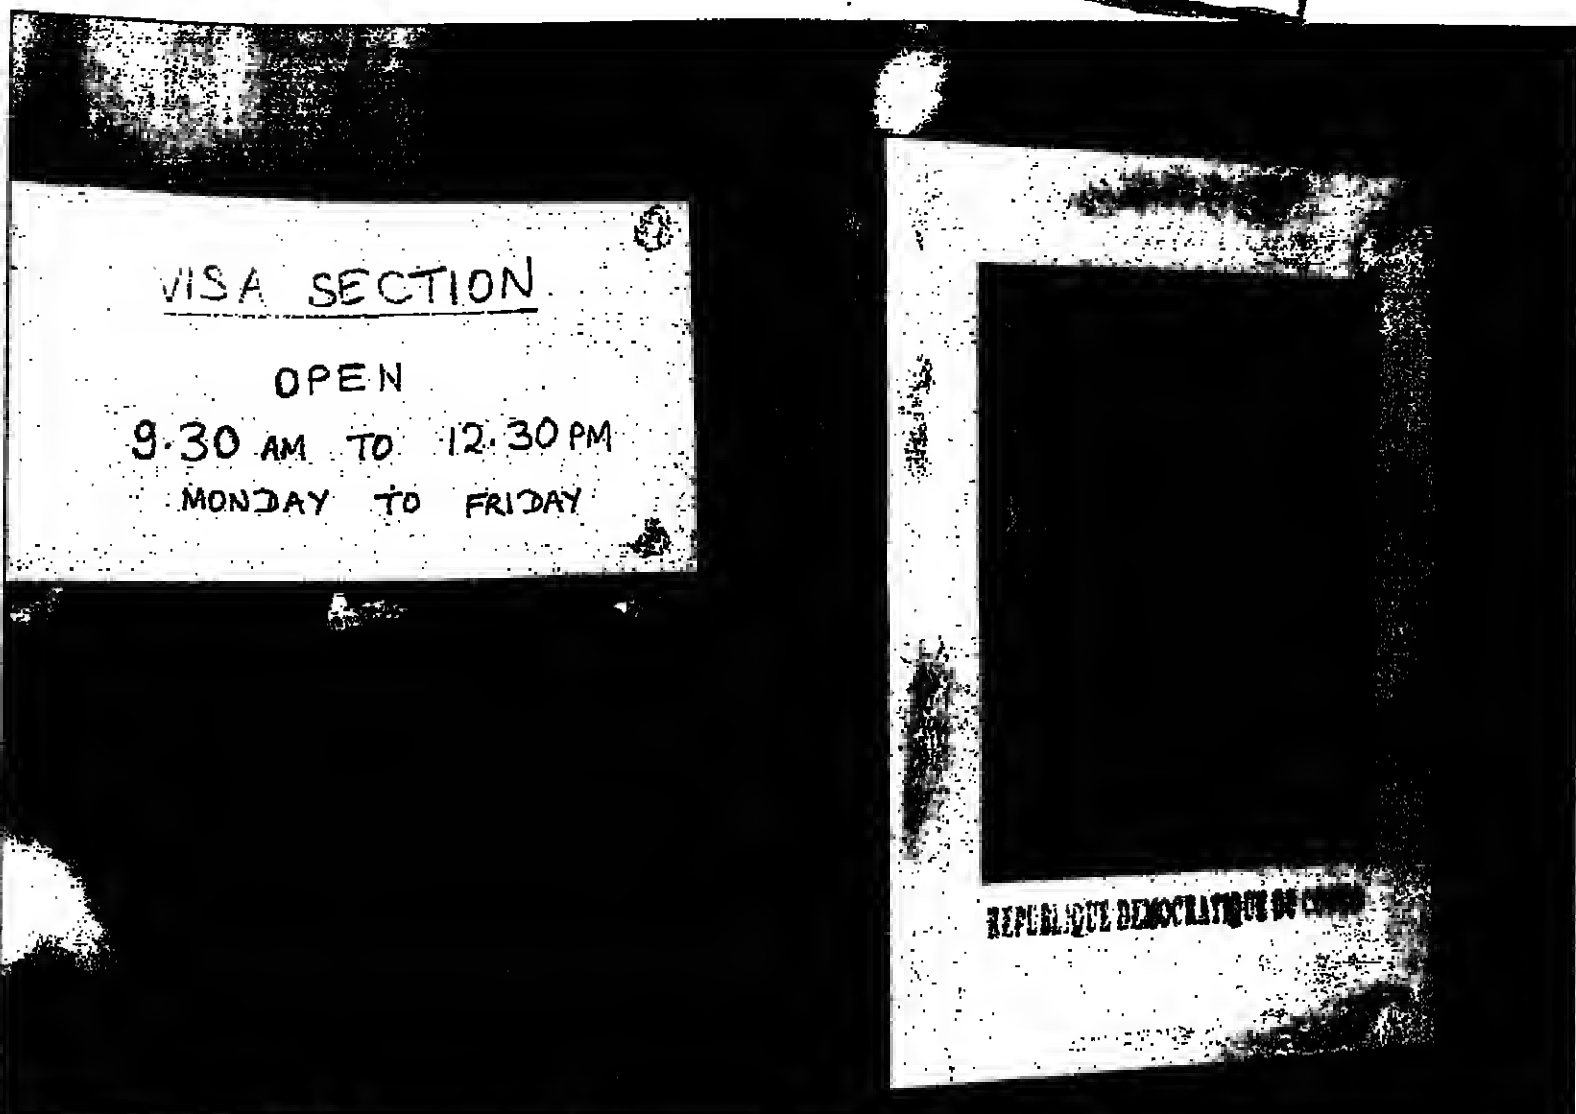 VISA SECTION
OPEN
9.30 AM TO 12.30 PM
MONDAY TO FRIDAY
REPUBLIQUE DEMOCRATIQUE DU CONGO